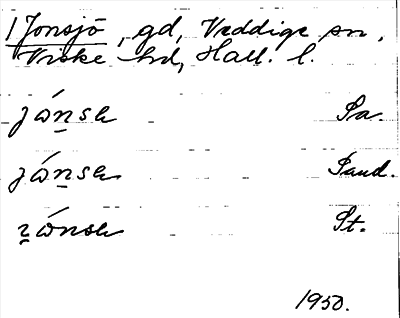 1 Jonsjö, gd, Veddige sn,
Viske hd, Hall. l.
jɷ́nsɷ Sa.
jɷ́nsɷ Sand.
St.
1950.